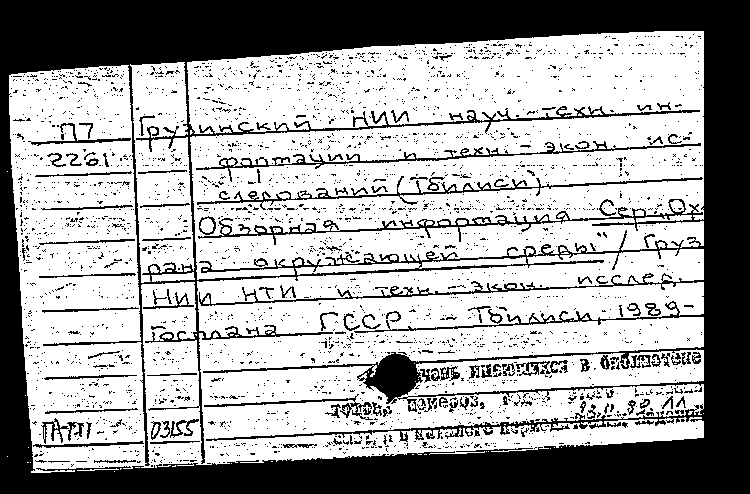 П7 Грузинский НИИ науч.-техн. ин-
2261 формации и техн.-экон. ис-
следований (Тбилиси).
Обзорная информация Сер. „Ох-
рана окружающей среды" / Груз
НИИ НТИ и техн.-экон. исслед.
Госплана ГССР. - Тбилиси, 1989-
имеющихся в библиотеке
номеров,
03155